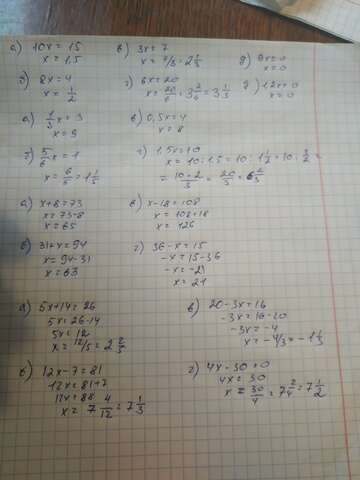 а) 10x = 15
x = 1,5
в) 3x = 7
x = 7/3 = 2 1/3
д) 9x = 0
x = 0
б) 8x = 4
x = 1/2
г) 6x = 20
x = 20/6 = 3 2/6 = 3 1/3
12x = 0
x = 0
а) 1/3 x = 3
x = 9
в) 0,5x = 4
x = 8
б) 5/6 x = 1
x = 6/5 = 1 1/5
г) 1,5x = 10
x = 10 : 1,5 = 10 : 1 1/2 = 10 : 3/2 =
= 10·2/3 = 20/3 = 6 2/3
а) x + 8 = 73
x = 73 - 8
x = 65
в) x - 18 = 108
x = 108 + 18
x = 126
б) 31 + x = 94
x = 94 - 31
x = 63
г) 36 - x = 15
-x = 15 - 36
-x = -21
x = 21
а) 5x + 14 = 26
5x = 26 - 14
5x = 12
x = 12/5 = 2 2/5
в) 20 - 3x = 16
-3x = 16 - 20
-3x = -4
x = -4/3 = -1 1/3
б) 12x - 7 = 81
12x = 81 + 7
12x = 88
x = 7 4/12 = 7 1/3
г) 4x - 30 = 0
4x = 30
x = 30/4 = 7 2/4 = 7 1/2